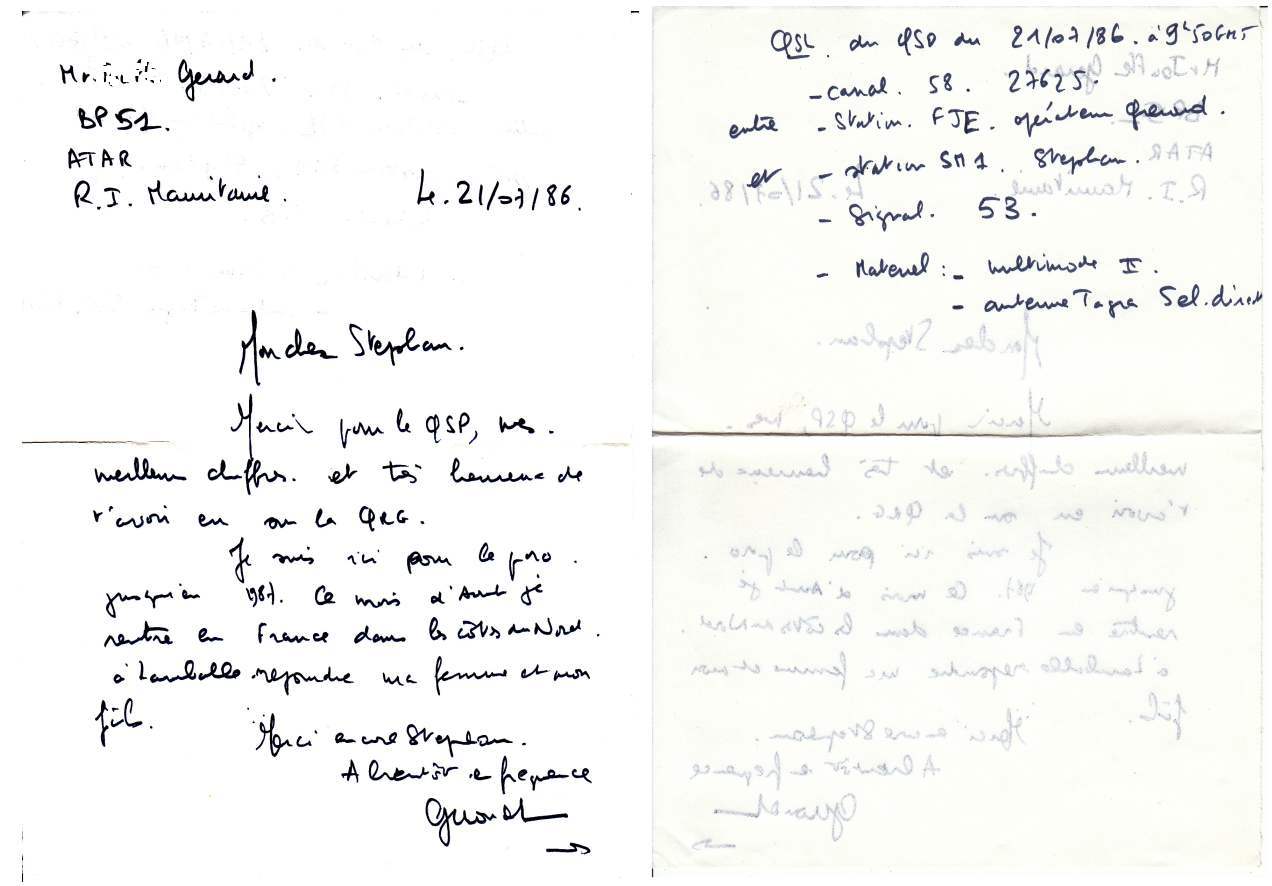 Mr. Gerard.
BP 51.
ATAR
R.I. Mauritanie. Le. 21/07/86.
Mon cher Stephan.
Merci pour le QSP, mes.
meilleurs chiffres. et très heureux de
t'avoir eu sur la QRG.
Je suis ici pour le pro.
jusqu'en 1987. Ce mois d'Août je
rentre en France dans les côtes du Nord.
à Lamballe rejoindre ma femme et mon
fils.
Merci encore Stephan.
A bientôt en fréquence
Gerard
→
QSL. du QSO du 21/07/86. à 9h50GMT
- canal. 58. 27625.
entre - Station. FJE. opérateur Gerard.
et - station SM1. Stephan.
- Signal. 53.
- Materiel : - multimode II.
- antenne Tagra Sel. direct